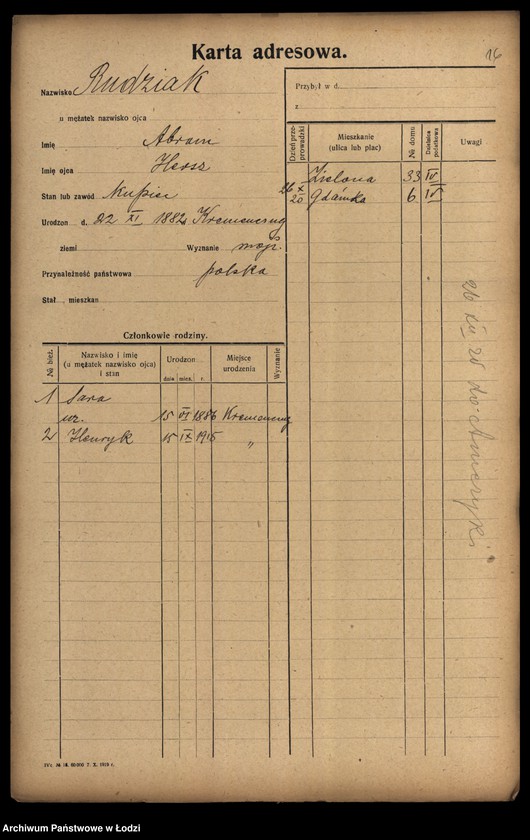 Karta adresowa.
16
Nazwisko Rudziak
u mężatek nazwisko ojca
Imię Abram
Imię ojca Hersz
Stan lub zawód kupiec
Urodzon d. 22 XI 1882 Kremenczug
ziemi Wyznanie mojż.
Przynależność państwowa polska
Stał mieszkan
Przybył w d.
z
Dzień przeprowadzki Mieszkanie (ulica lub plac) № domu Dzielnica podatkowa Uwagi
Zielona 33 IV
26 X 20 Gdańska 6 IV
26 XII 20 do Ameryki
Członkowie rodziny.
№ bież. Nazwisko i imię (u mężatek nazwisko ojca) i stan Urodzon Miejsce urodzenia Wyznanie
dnia mies. r.
1 Sara
uz. 15 VI 1886 Kremenczug
2 Henryk 15 IX 1915 "
7. X. 1919 r.
Archiwum Państwowe w Łodzi